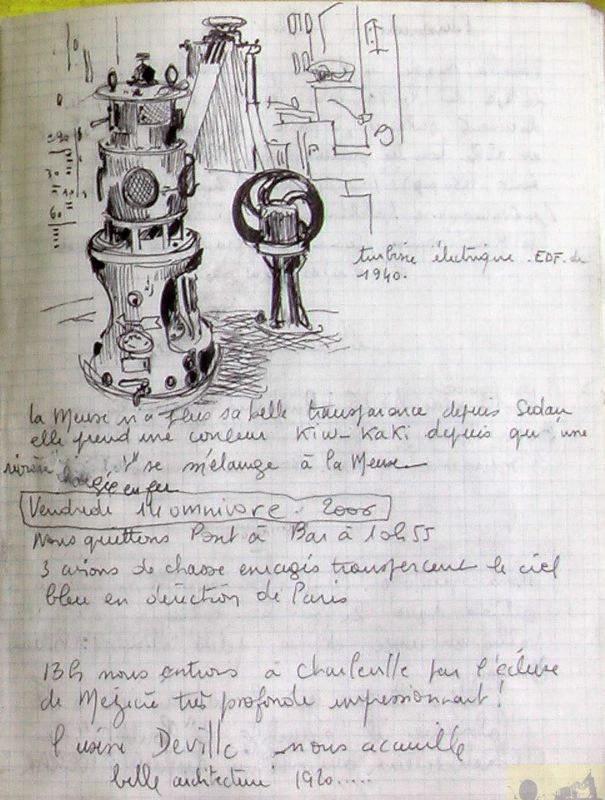 30
60
turbine électrique. EDF. de
1940.
la Meuse n'a plus sa belle transparance depuis Sedan
elle prend une couleur Kiwi-Kaki depuis qu'une
se mélange à la Meuse
chargée en fer
Vendredi 14 omnivore. 2006
Nous quittons Pont à Bar à 10h55
3 avions de chasse enragés transpercent le ciel
bleu en direction de Paris
13h nous entrons à Charleville par l'écluse
de Mézière très profonde impressionnant!
l'usine Deville nous acceuille
belle architecture 1920.....